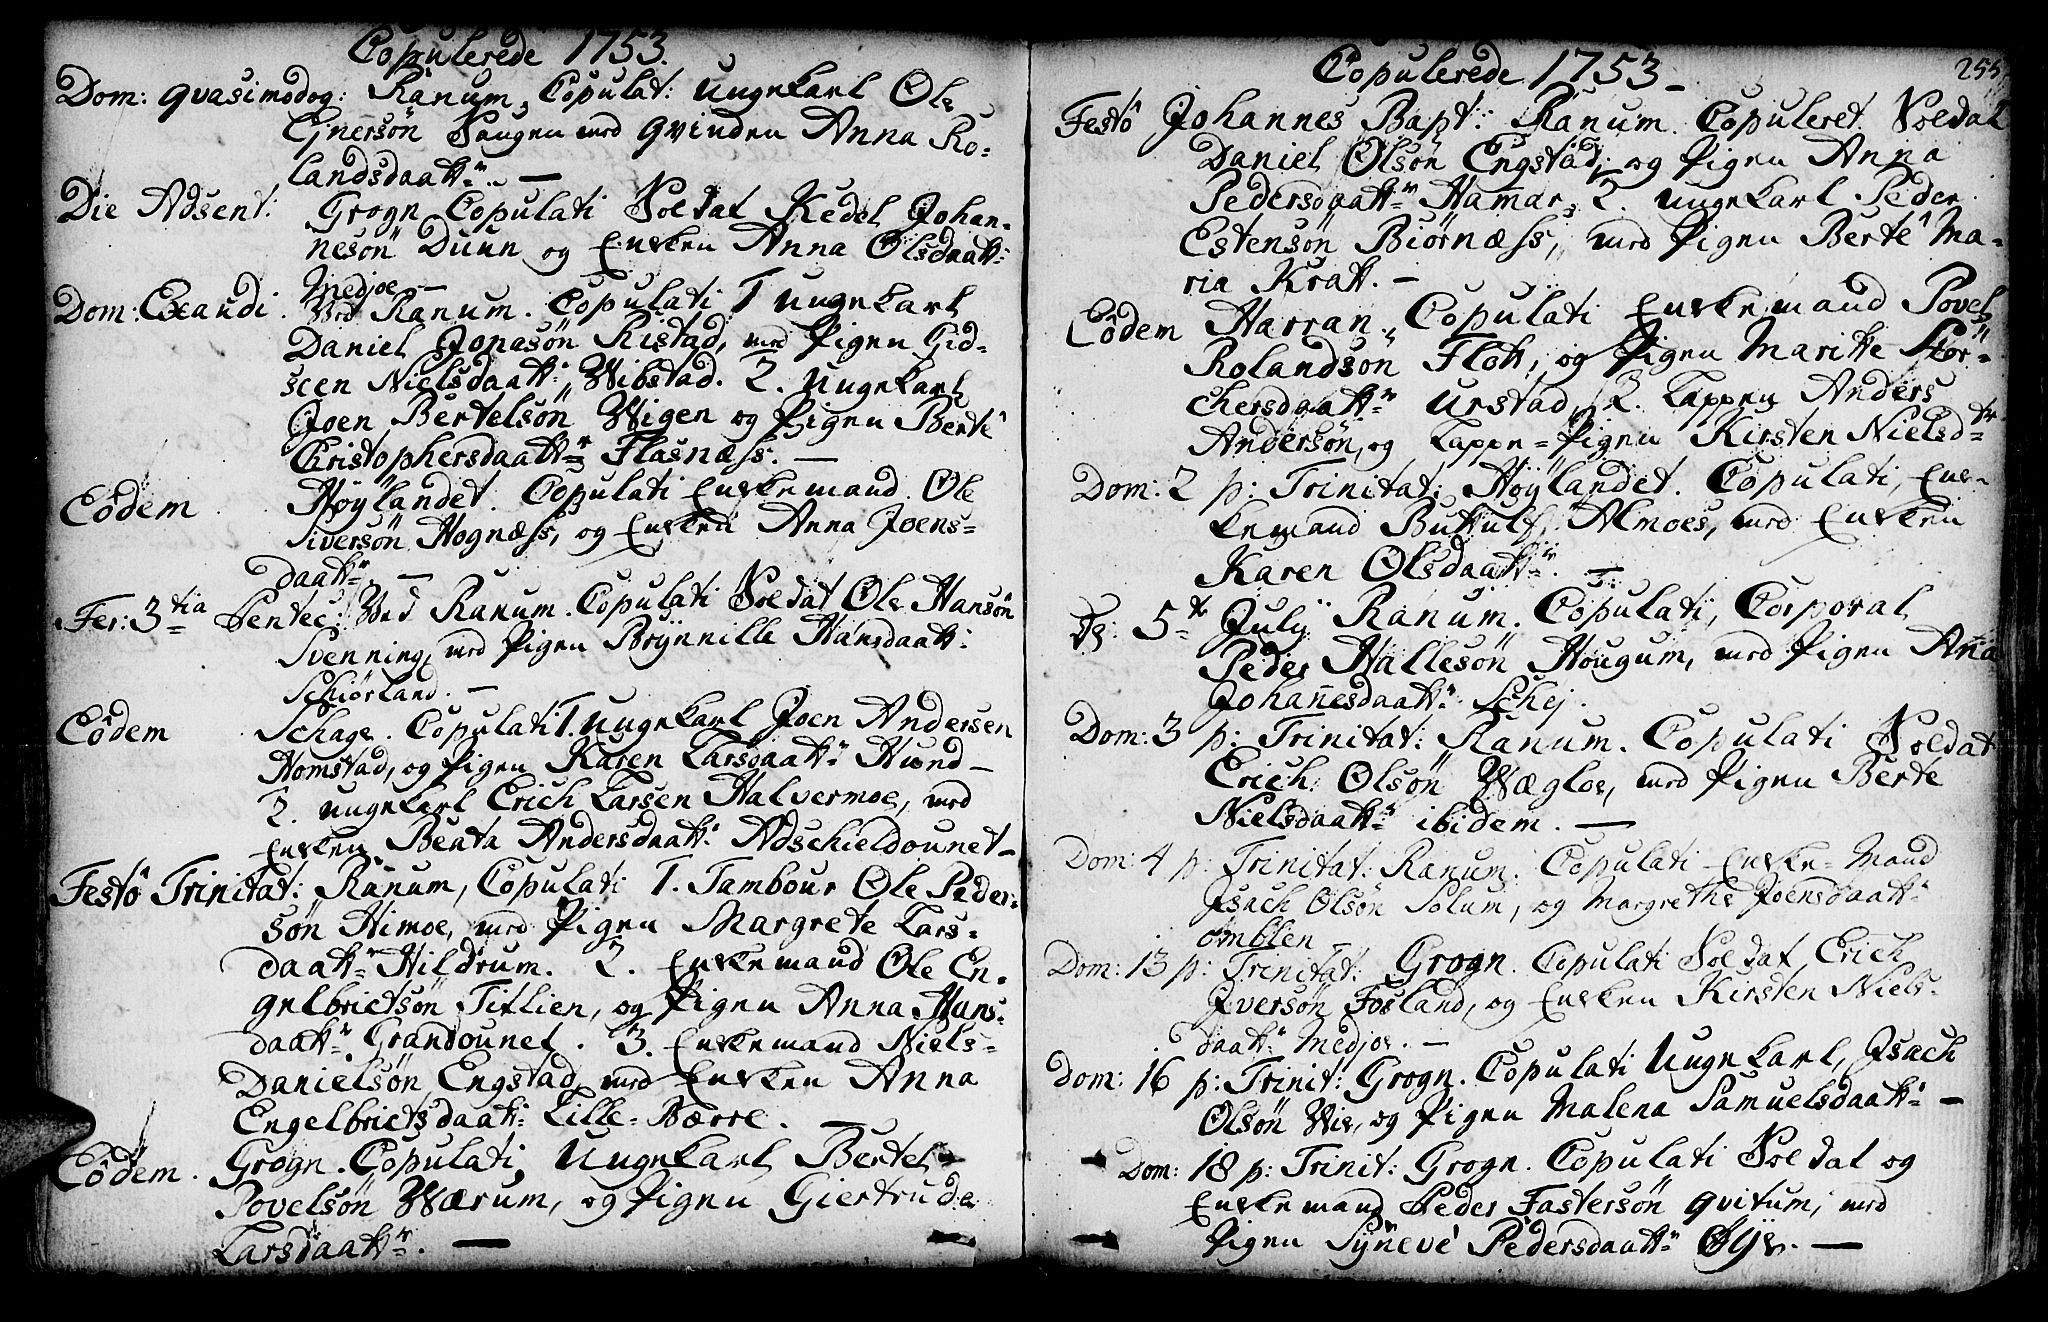 Copulerede 1753.
Dom: qvasimodog: Ranum, Copulat: Ungekarl Ole
Ejnersön Saugen med qvinden Anna Ro-
landsdaattr. —
Die Adsent: Grogn Copulati Soldat Kedel Johan-
nesön Duun og Enken Anna Olsdaatt:
Medjoe —
Dom: Exaudi. Ved Ranum. Copulati 1 Ungekarl
Daniel Jonasön Ristad, med Pigen Gid-
scen Nielsdaatt: Wibstad. 2. Ungekarl
Joen Bertelsön Wigen og Pigen Berte
Christophersdaattr Flasnæss. —
Eôdem Höÿlandet. Copulati Enkemand Ole
Siversön Hognæss, og Enken Anna Joens-
daattr. —
Fer: 3tia Pentec: Ved Ranum. Copulati Soldat Ole Hansön
Svenning, med Pigen Brÿnnille Hansdaatt:
Schiörland. —
Eôdem Schage. Copulati 1. Ungekarl Joen Andersen
Homstad, og Pigen Karen Larsdaattr Hund —
2. Ungekarl Erich Larsen Halvermoe, med
Enken Beata Andersdaatt: Adschieldounet —
Festô Trinitat: Ranum, Copulati 1. Tambour Ole Peder-
sön Himoe, med Pigen Margrete Lars-
daattr Hildrum. 2. Enkemand Ole En-
gelbrictsön Tiflien, og Pigen Anna Hans-
daattr. Grandounet. 3. Enkemand Niels
Danielsön Engstad med Enken Anna
Engelbrictsdaatt: Lille-Bærre. —
Eôdem. Grogn. Copulati, Ungekarl Bertel
Povelsön Wærum, og Pigen Giertrude
Larsdaattr. —
Copulerede 1753 — 255
Festô Johannes Bapt: Ranum. Copuleret Soldat
Daniel Olsön Engstad, og Pigen Anna
Pedersdaattr Hamar, 2. Ungekarl Peder
Estensön Biörnæss, med Pigen Berte Ma-
ria Kratt. —
Eôdem Harran, Copulati Enkemand Povel
Rolandsön Flott, og Pigen Maritte Stor-
chersdaattr Urstad, 2. Lappen Anders
Andersön, og Lappe-Pigen Kirsten Nielsdtr
Dom: 2 p: Trinitat: Höÿlandet. Copulati, Enk-
kemand Buttulf Almoes, med Enken
Karen Olsdaattr. —
5te Julÿ Ranum. Copulati, Corporal
Peder Hallesön Hougum, med Pigen Ana
Johañesdaattr Schej.
Dom: 3 p: Trinitat: Ranum. Copulati Soldat
Erich Olsön Wægloe, med Pigen Berte
Nielsdaattr ibidem. —
Dom: 4 p: Trinitat: Ranum. Copulati Enke-Mand
Isach Olsön Solum, og Margrethe Joensdaatt:
omblen
Dom: 13 p: Trinitat: Grogn. Copulati Soldat Erich
Iversön Fosland, og Enken Kirsten Niels-
daatt: Medjoe. —
Dom: 16 p: Trinit: Grogn. Copulati Ungekarl, Isach
Olsön Wie, og Pigen Malena Samuelsdaatt: —
Dom: 18 p: Trinit: Grogn. Copulati Soldat og
Enkemand Peder Fastersön qvitum, med
Pigen Sÿnevé Pedersdaattr Öÿe. —